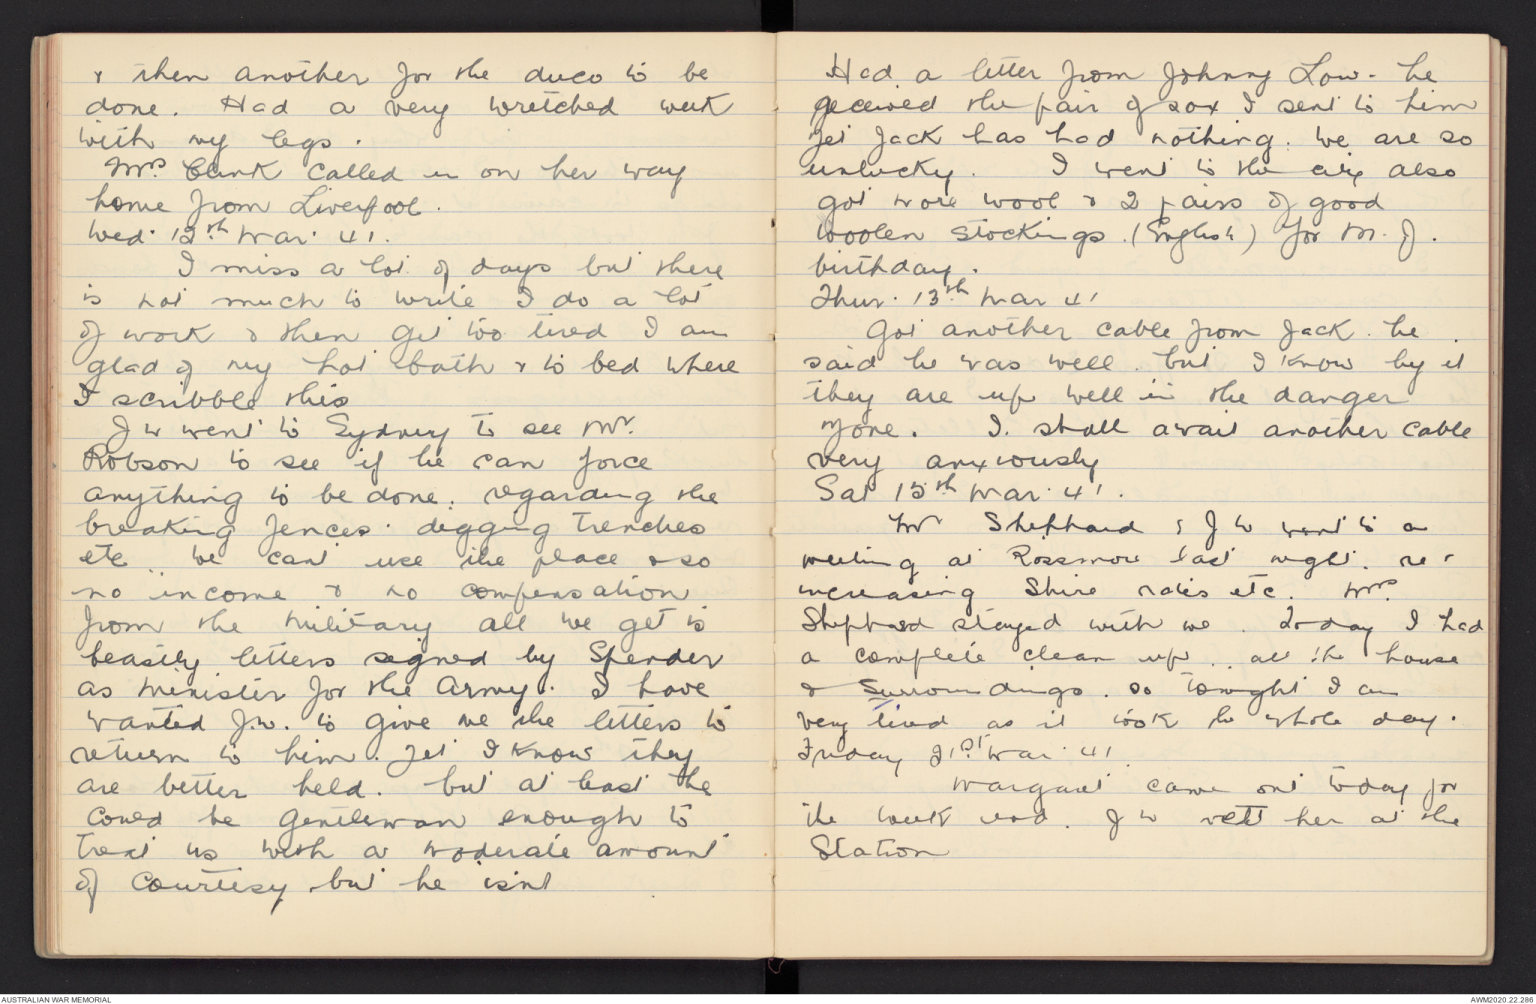 & then another for the duco to be
done. Had a very wretched week
with my legs.
Mrs. Clark called in on her way
home from Liverpool.
Wed. 12th Mar. 41.
I miss a lot of days but there
is not much to write I do a lot
of work & then get too tired I am
glad of my hot bath & to bed where
I scribble this
J W went to Sydney to see Mr.
Robson to see if he can force
anything to be done. regarding the
breaking fences. digging trenches
etc we can't use the place & so
no income & no compensation
from the military all we get is
beastly letters signed by Spender
as Minister for the Army. I have
wanted J.W. to give me the letters to
return to him. Yet I know they
are better held. but at least he
could be gentleman enough to
treat us with a moderate amount
of courtesy but he isn't
Had a letter from Johnny Low. he
received the pair of sox I sent to him
yet Jack has had nothing. We are so
unlucky. I went to the city also
got more wool & 2 pairs of good
woolen stockings (English) for M. J.
birthday.
Thur. 13th Mar 41
Got another cable from Jack. he
said he was well. but I know by it
they are up well in the danger
zone. I shall await another cable
very anxiously
Sat 15th Mar. 41.
Mr Shephard & J W went to a
meeting at Rossmore last night. re.
increasing Shire rates etc. Mrs.
Shephard stayed with me. Today I had
a complete clean up.. all the house
& surroundings. so tonight I am
very tired as it took the whole day.
Friday 21st Mar. 41.
Margaret came out today for
the week end. J W mett her at the
Station
AUSTRALIAN WAR MEMORIAL
AWM2020.22.286